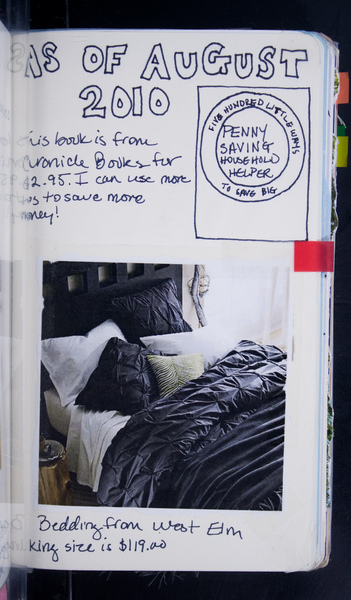 AS OF AUGUST
2010
this book is from
Chronicle Books for
12.95. I can use more
to save more
money!
FIVE HUNDRED LITTLE WAYS
PENNY
SAVING
HOUSEHOLD
HELPER
TO SAVE BIG
Bedding from West Elm
king size is $119.00